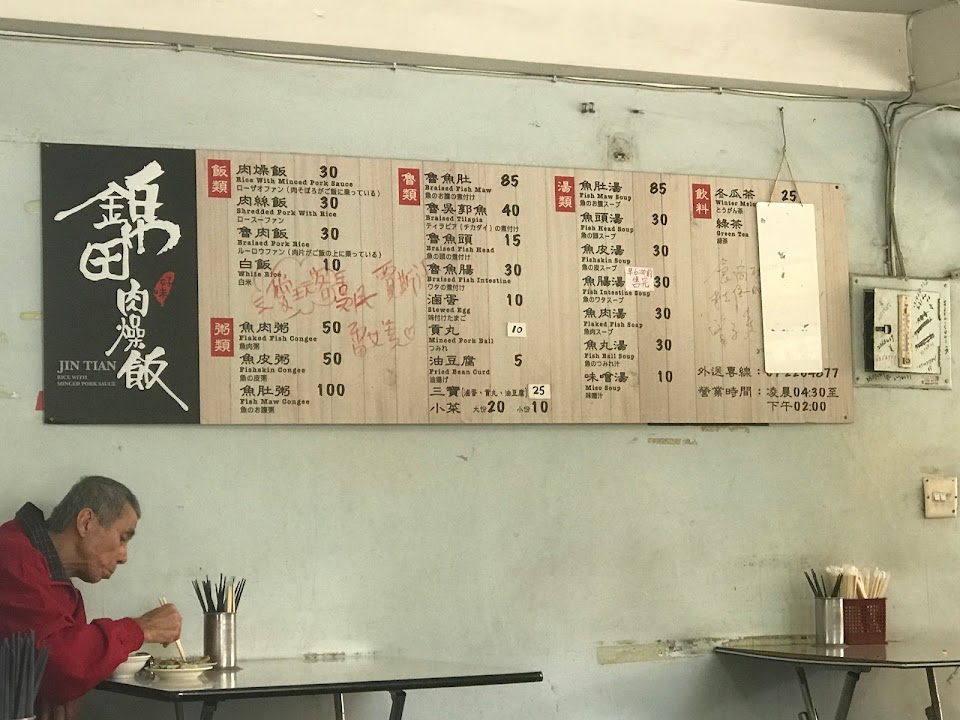 錦田
肉燥飯
JIN TIAN
RICE WITH
MINCED PORK SAUCE
飯類
肉燥飯 30
Rice With Minced Pork Sauce
ローザオファン（肉そぼろがご飯に乗っている）
肉絲飯 30
Shredded Pork With Rice
ロースーファン
魯肉飯 30
Braised Pork Rice
ルーロウファン（肉片がご飯の上に乗っている）
白飯 10
White Rice
白米
粥類
魚肉粥 50
Flaked Fish Congee
魚肉粥
魚皮粥 50
Fishskin Congee
魚の皮粥
魚肚粥 100
Fish Maw Congee
魚のお腹粥
魯類
魯魚肚 85
Braised Fish Maw
魚のお腹の煮付け
魯吳郭魚 40
Braised Tilapia
ティラピア（チカダイ）の煮付け
魯魚頭 15
Braised Fish Head
魚の頭の煮付け
魯魚腸 30
Braised Fish Intestine
ワタの煮付け
滷蛋 10
Stewed Egg
味付けたまご
貢丸 10
Minced Pork Ball
つみれ
油豆腐 5
Fried Bean Curd
油揚げ
三寶[滷蛋、貢丸、油豆腐] 25
小菜 大份20 小份10
湯類
魚肚湯 85
Fish Maw Soup
魚のお腹スープ
魚頭湯 30
Fish Head Soup
魚の頭スープ
魚皮湯 30
Fishskin Soup
魚の皮スープ
魚腸湯 30
Fish Intestine Soup
魚のワタスープ
魚肉湯 30
Flaked Fish Soup
魚肉スープ
魚丸湯 30
Fish Ball Soup
魚のつみれ汁
味噌湯 10
Miso Soup
味噌汁
飲料
冬瓜茶 25
Winter
とうがん茶
綠茶
Green Tea
緑茶
外送專線
2204877
營業時間：凌晨04:30至
下午02:00